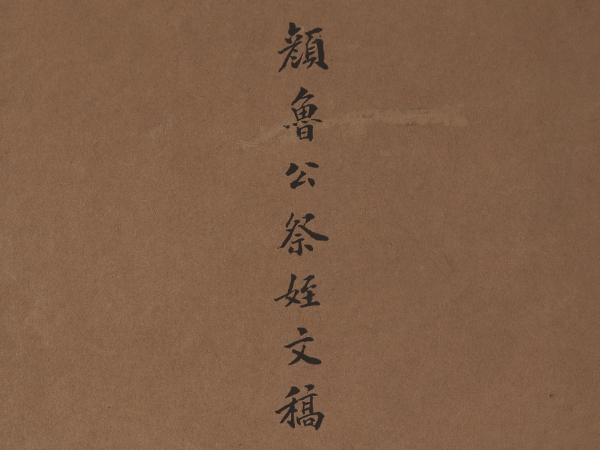 顔魯公祭姪文稿